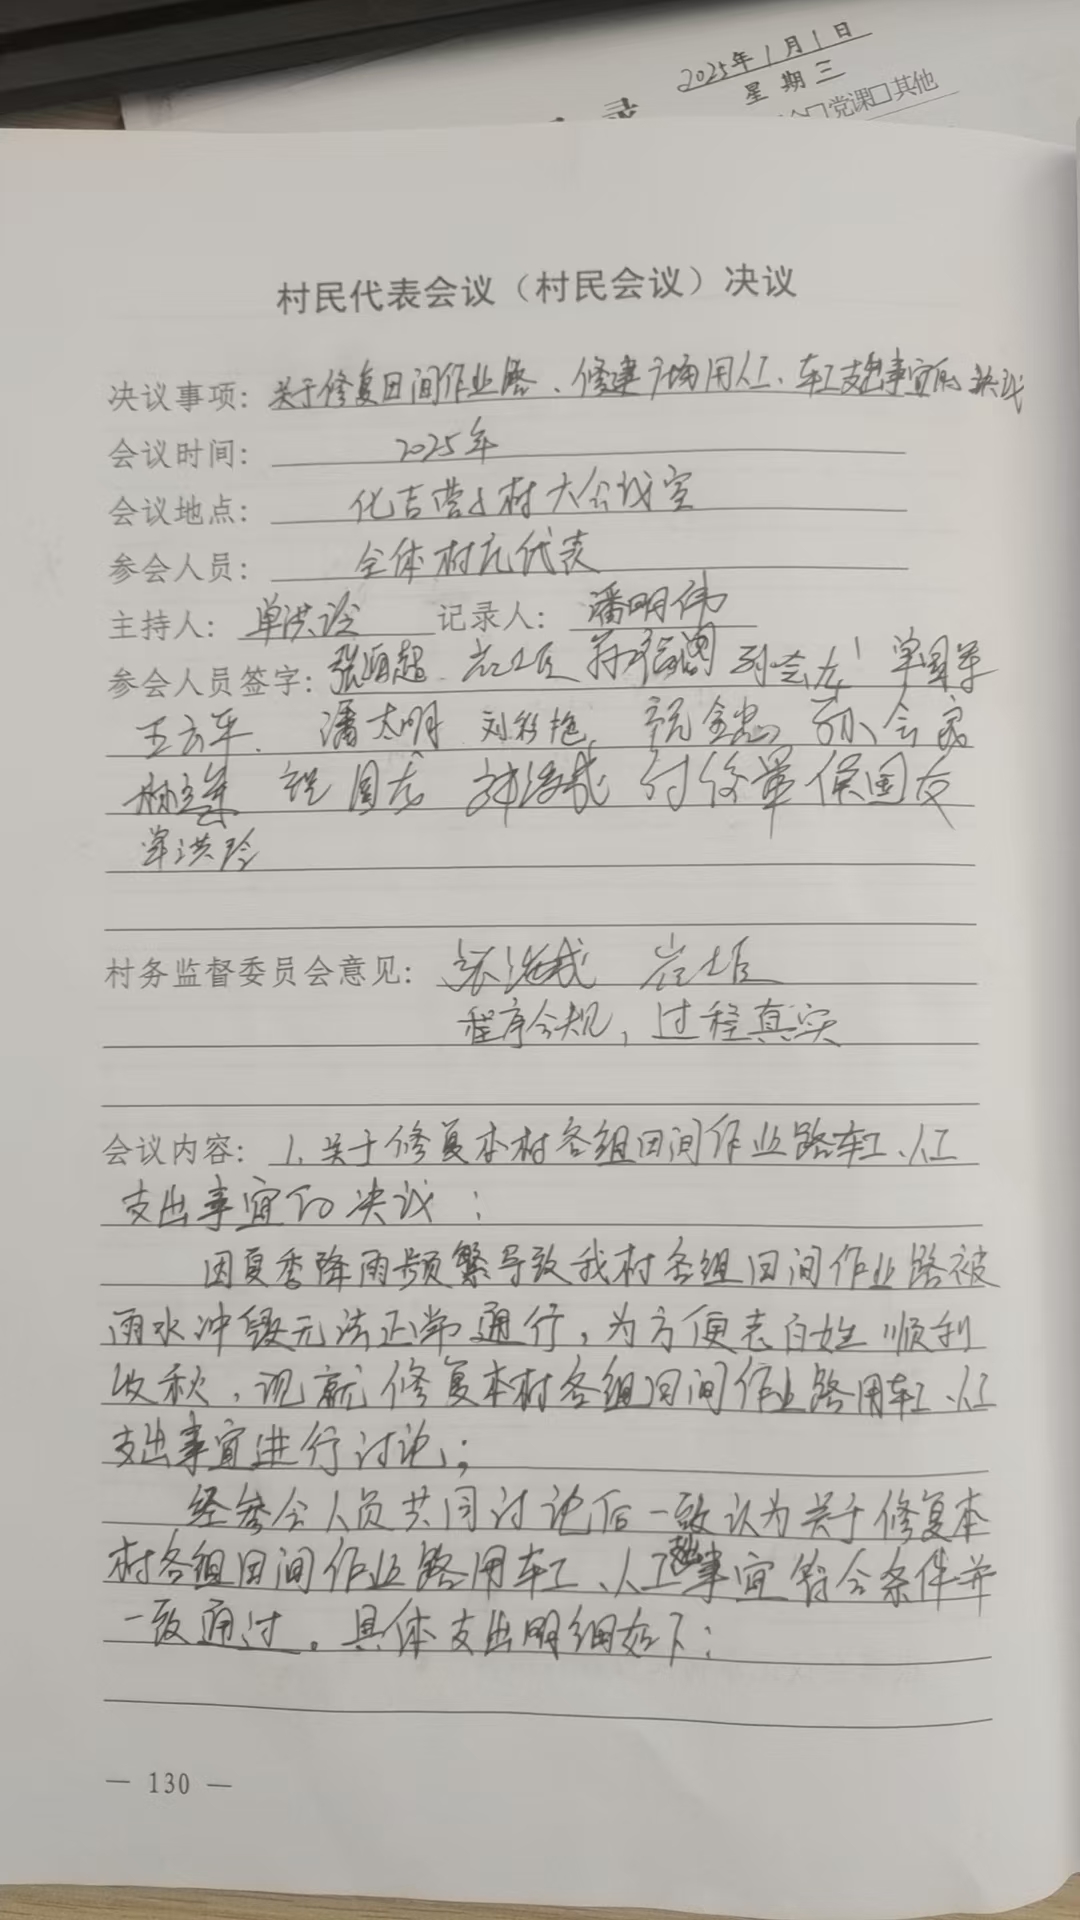 2025年1月1日
星期三
录
党课□其他
村民代表会议（村民会议）决议
决议事项：关于修复田间作业路、修建广场用人工、车工支出事宜的决议
会议时间：2025年
会议地点：化吉营子村大会议室
参会人员：全体村民代表
主持人：单洪玲 记录人：潘明伟
参会人员签字：张 超 单国军
王云年 潘太明 刘彩艳 祝金忠 孙会家
祝国 付俊军 侯国友
单洪玲
村务监督委员会意见：
程序合规，过程真实
会议内容：1、关于修复本村各组田间作业路车工、人工
支出事宜的决议：
因夏季降雨频繁导致我村各组田间作业路被
雨水冲毁无法正常通行，为方便老百姓顺利
收秋，现就修复本村各组田间作业路用车工、人工
支出事宜进行讨论；
经参会人员共同讨论后一致认为关于修复本
村各组田间作业路用车工、人工支出事宜符合条件并
一致通过。具体支出明细如下：
— 130 —